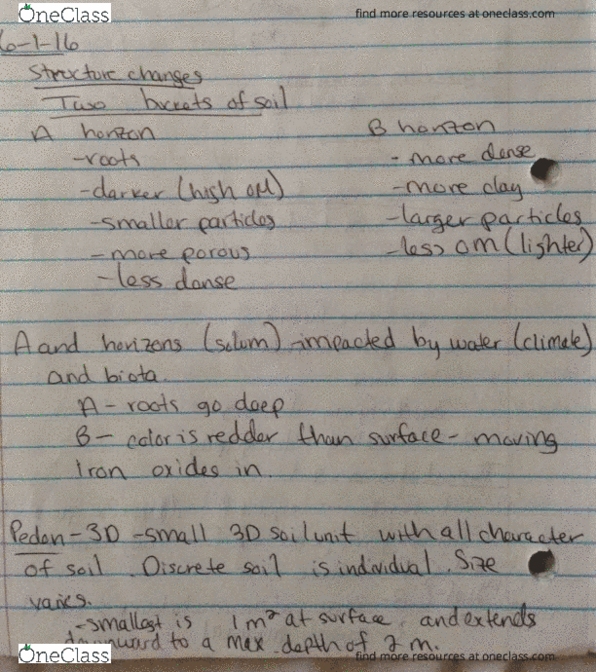 OneClass
find more resources at oneclass.com
6-1-16
Structure changes
Two buckets of soil
A horizon
B horizon
-roots
- more dense
-darker (high OM)
-more clay
-smaller particles
-larger particles
-more porous
-less OM (lighter)
-less dense
A and horizens (solum) -impacted by water (climate)
and biota.
A - roots go deep
B - color is redder than surface - moving
Iron oxides in.
Pedon - 3D - small 3D soil unit with all character
of soil. Discrete soil is individual. Size
varies.
-smallest is 1m² at surface, and extends
downward to a max. depth of 2 m.
OneClass
find more resources at oneclass.com